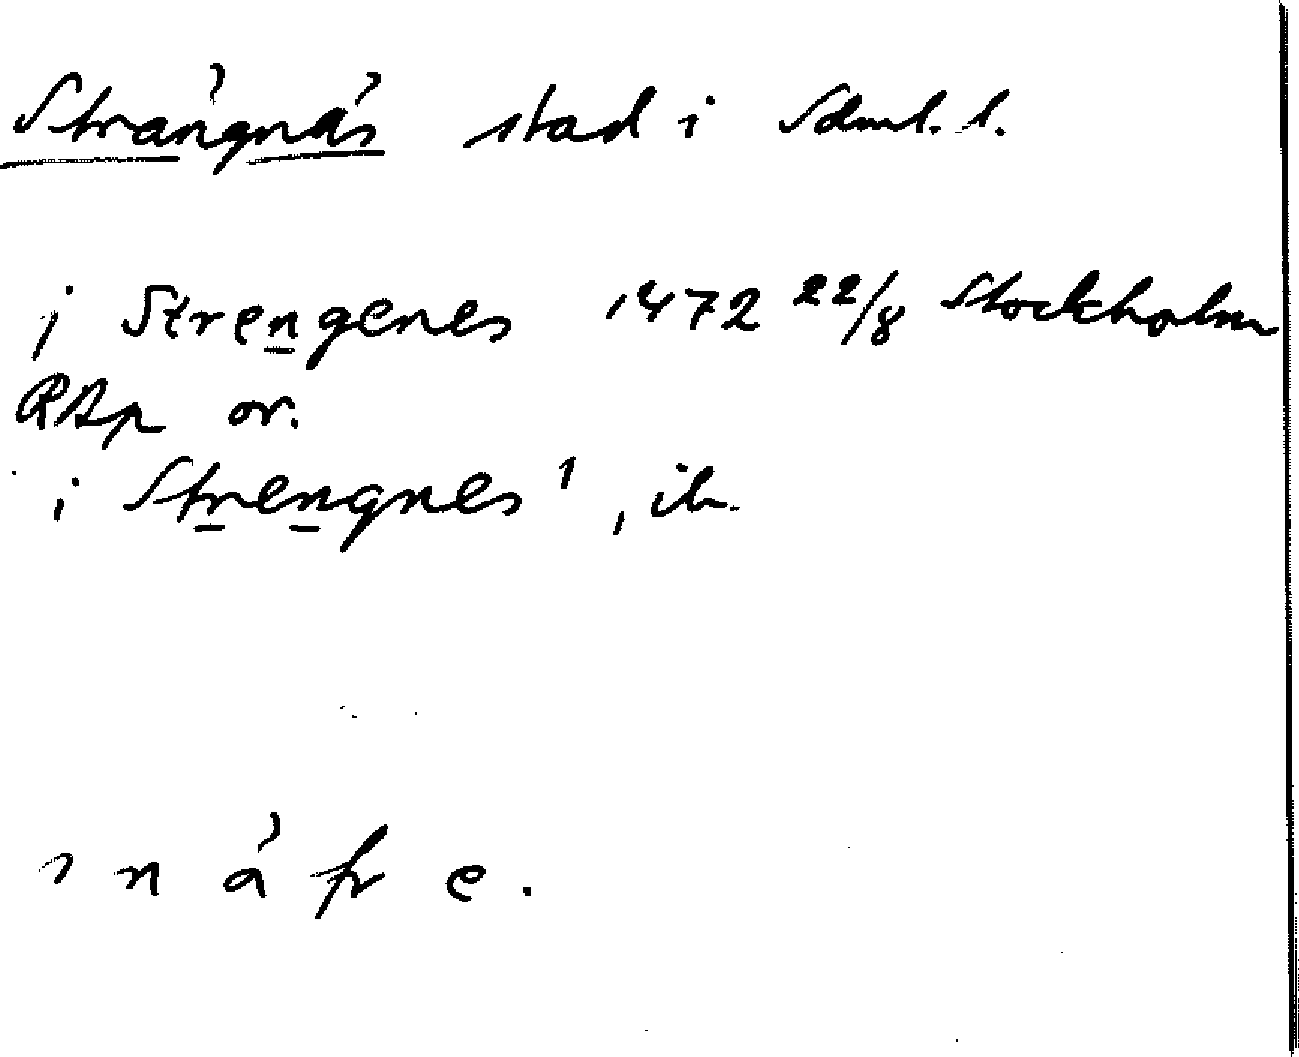 Strängnäs stad i Sdml. l.
j Strengenes 1472 22/8 Stockholm
RAp or.
i Strengnes 1, ib.